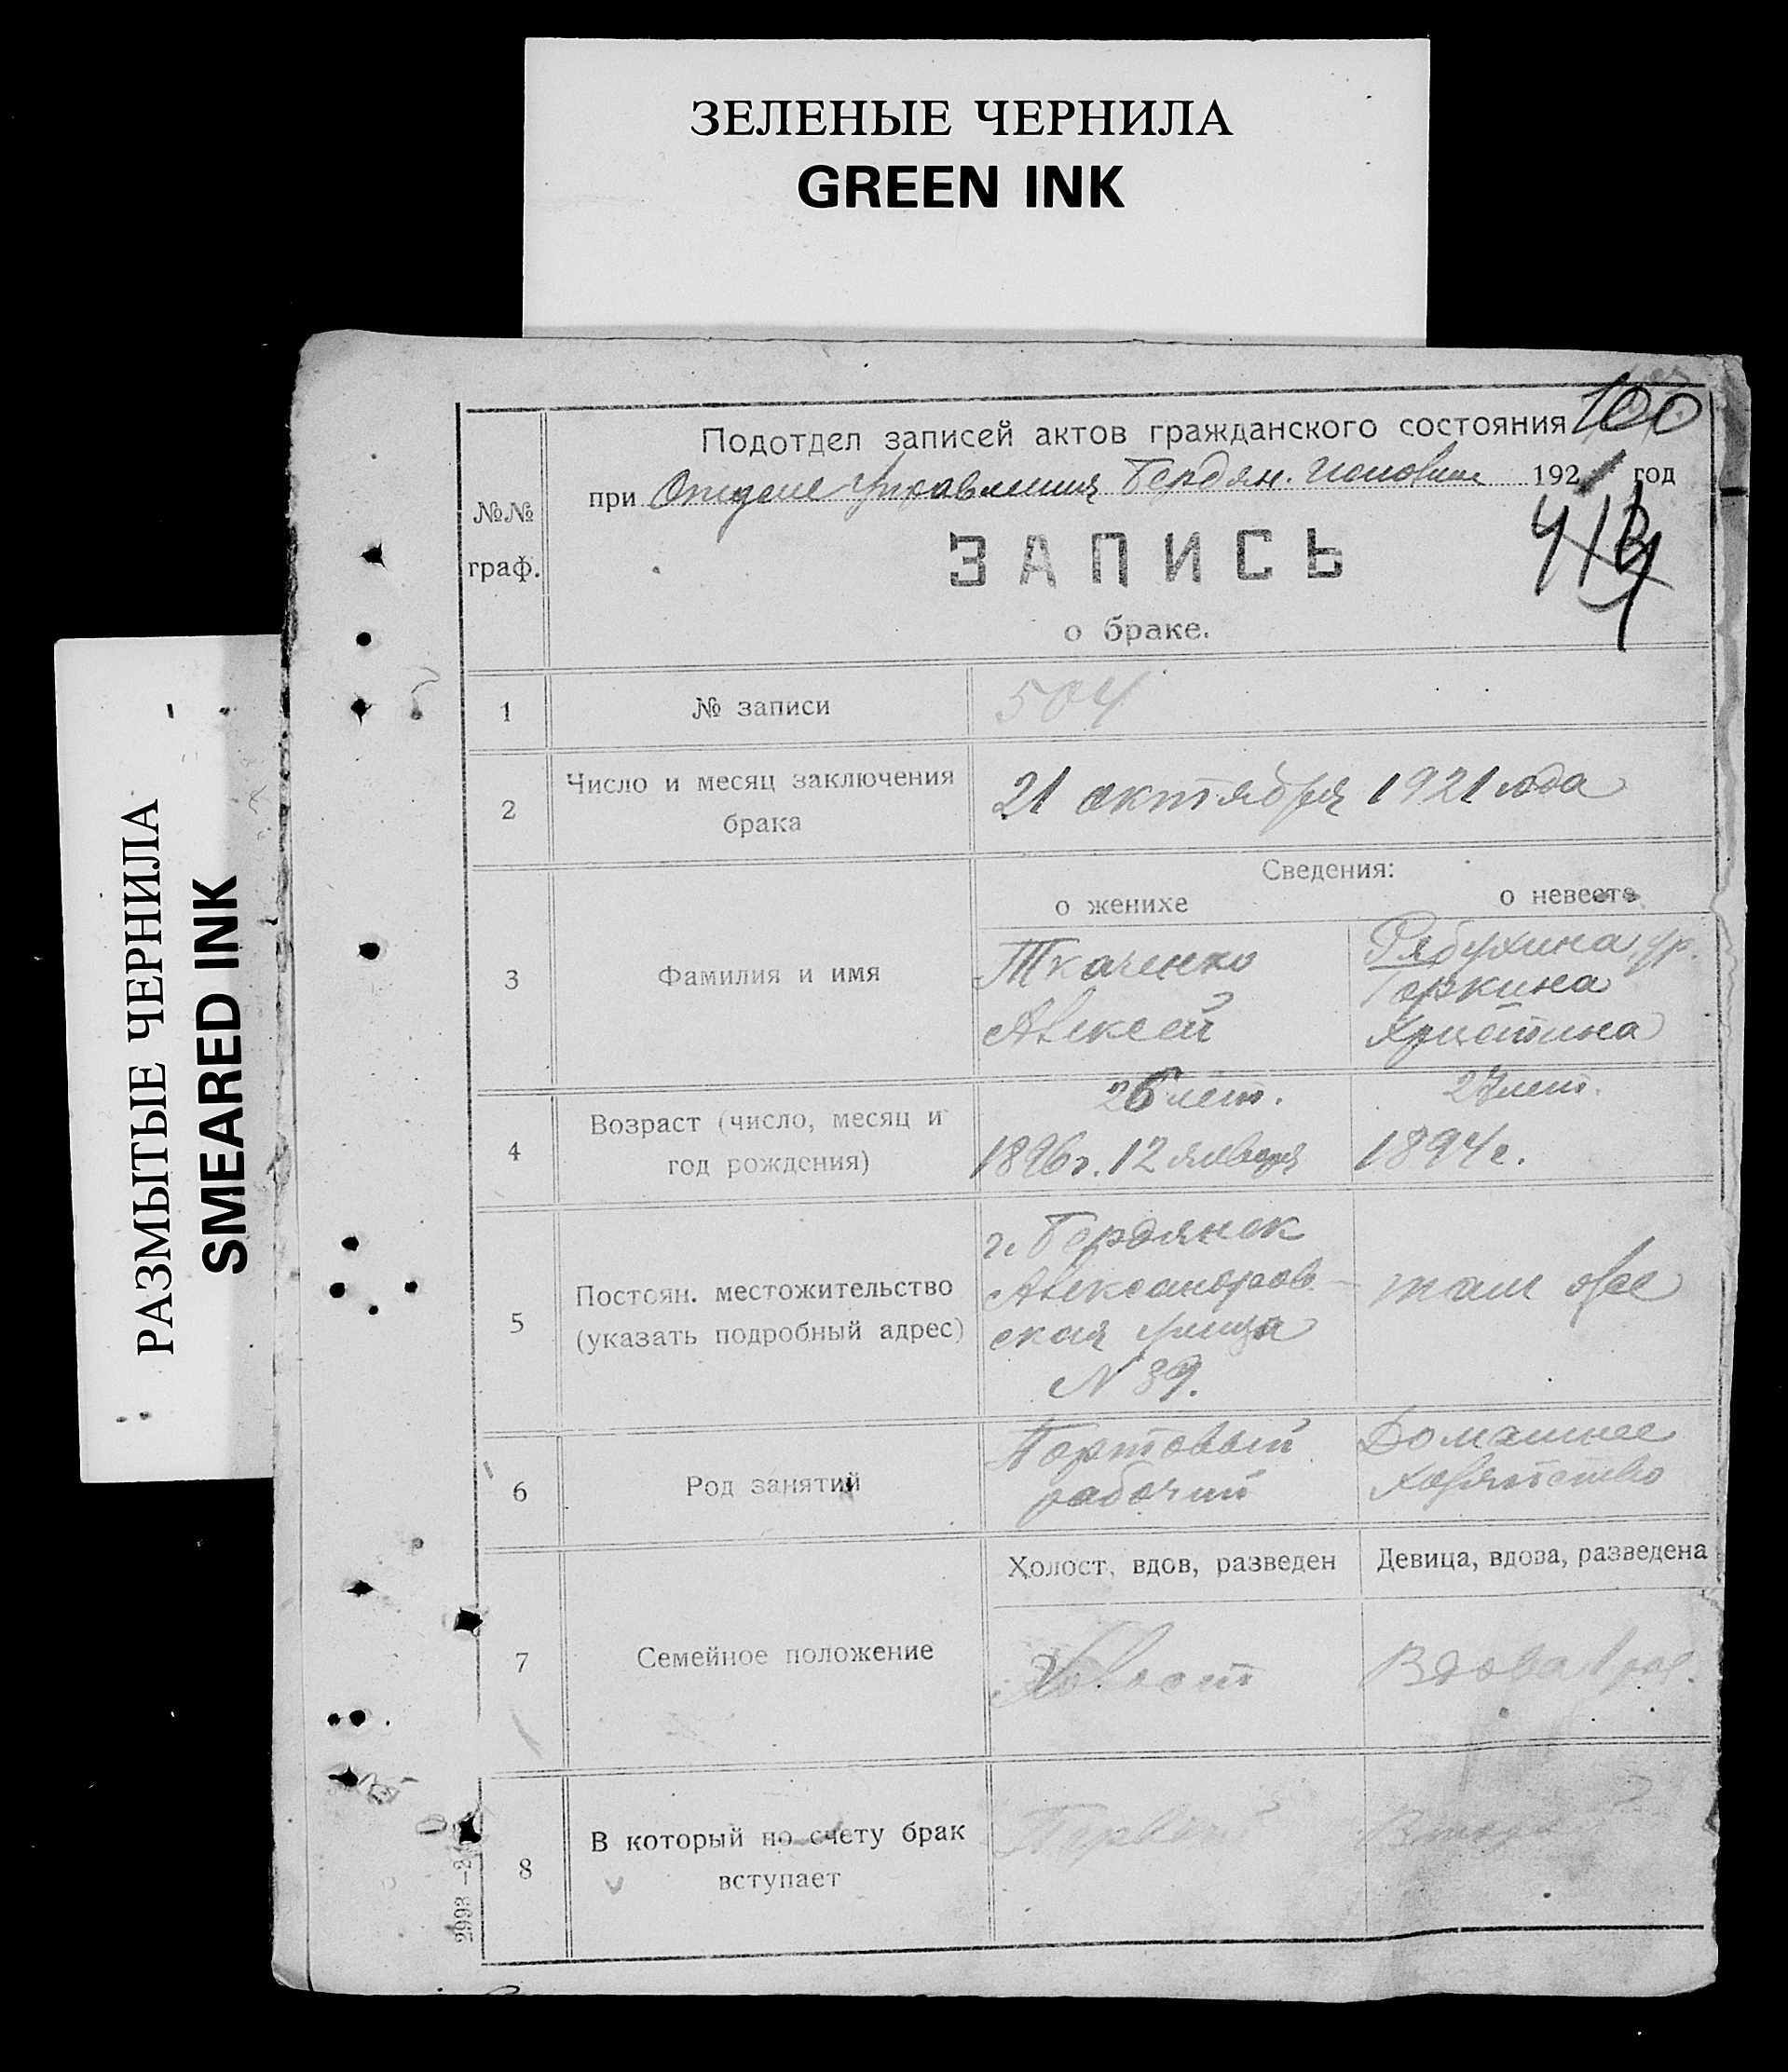 ЗЕЛЕНЫЕ ЧЕРНИЛА
GREEN INK
РАЗМЫТЫЕ ЧЕРНИЛА
SMEARED INK
100
Подотдел записей актов гражданского состояния
при Отделе Управления Бердян. Исполкома 1921 год
№№
граф.
ЗАПИСЬ
о браке.
1
№ записи
504
2
Число и месяц заключения
брака
21 октября 1921 года
Сведения:
о женихе
о невесте
3
Фамилия и имя
Ткаченко
Алексей
Рябухина ур.
Горкина
Христина
4
Возраст (число, месяц и
год рождения)
26 лет.
1896 г. 12 января
27 лет.
1894 г.
5
Постоян. местожительство
(указать подробный адрес)
г. Бердянск
Александров-
ская улица
N 39.
там же
6
Род занятий
Портовый
рабочий
Домашнее
хозяйство
7
Семейное положение
Холост, вдов, разведен
Девица, вдова, разведена
Холост
Вдова
8
В который по счету брак
вступает
Первый
Второй
2993